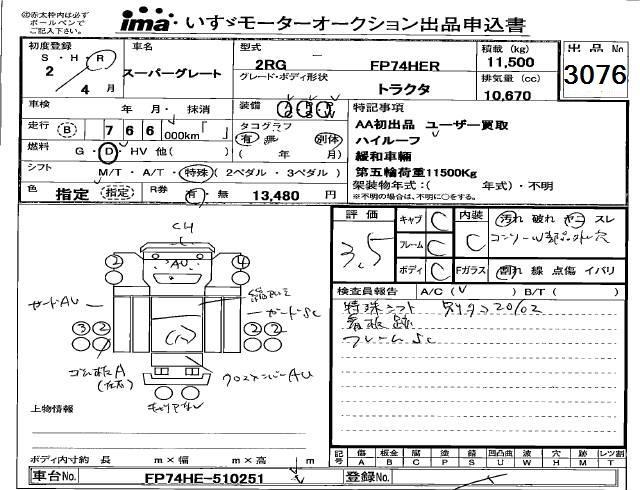 ㊟赤太枠内は必ず
ボールペンで
ご記入下さい。
ima いすゞモーターオークション出品申込書
初度登録
S・H・R
2 4月
車名
スーパーグレート
型式
2RG FP74HER
グレード・ボディ形状
トラクタ
積載 (kg)
11,500
排気量 (cc)
10,670
出品No
3076
車検 年 月・ 抹消
走行 (B) 7 6 6 000km「 」
燃料 G・D・HV 他( )
シフト M/T・A/T・特殊(2ペダル・3ペダル)
色 指定 (指定) R券 有・無 13,480 円
装備 A/C P/S P/W
タコグラフ
有 無 別体
( 年 月)
特記事項
AA初出品 ユーザー買取
ハイルーフ
緩和車輛
第五輪荷重11500Kg
架装物年式:( 年式)・不明
※不明の場合は、不明に○をする。
評価
3.5
キャブ C
フレーム C
ボディ C
内装
C
Fガラス
汚れ 破れ ヤニ スレ
割れ 線 点傷 イバリ
検査員報告 A/C(V ) B/T( )
特殊シフト
看板跡
フレームSC
CH
AU
2 4
ガードAU
ガードSC
3 2 2 2
クロスメンバーAU
上物情報
ボディ内寸約 長 m×幅 m×高 m
記号
傷 板金 腐 塗 錆 凹凸曲 波 穴 跡 レツ割
A B C P S U W H M T
車台No. FP74HE-510251
登録No.